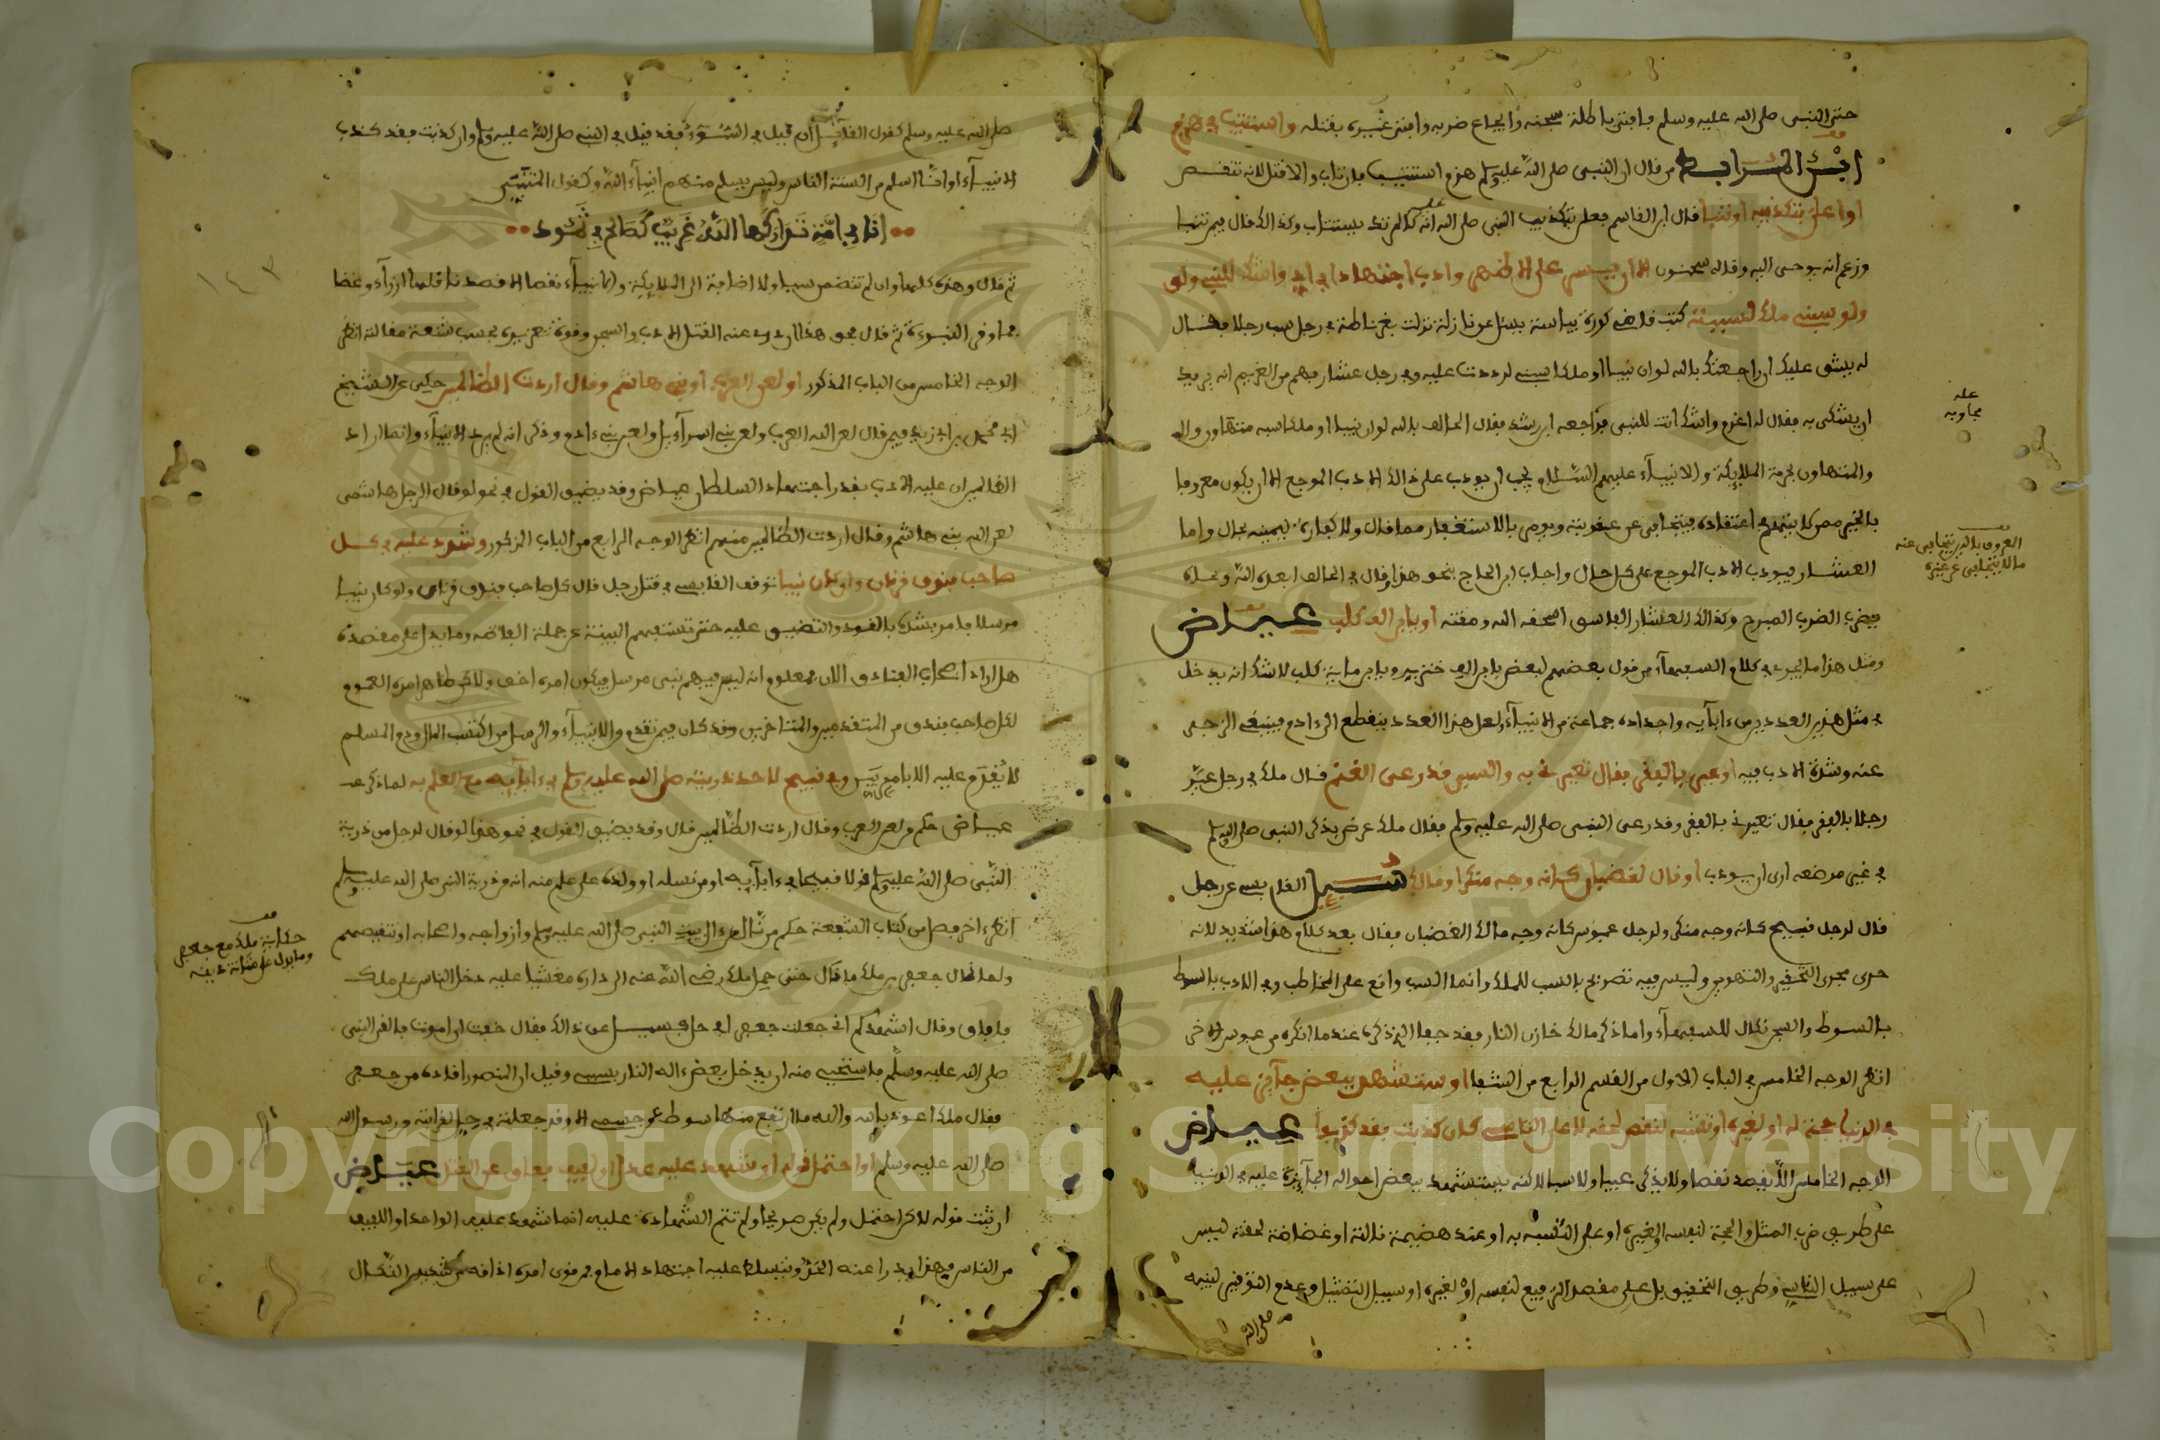 حتى النبي صلى الله عليه وسلم فافتى باطلة سجنه وايجاع ضربه وافتى غيره بقتله واستتيب في هزم
ابن المرابط من قال ان النبي صلى الله عليه وسلم هزم استتيب فان تاب والا قتل لانه تنقص
او اعلن بتكذيبه او تنبا قال ابن القاسم معلن بتكذيب النبي صلى الله عليه كالمرتد يستتاب وكذالك قال فيمن تنبا
وزعم انه يوحى اليه وقاله سحنون الا ان يسر على الاظهر وادب اجتهادا في اد واشك للنبي ولو
ولو سبني ملك لسببته كتب قاضي كورة بياسة يسئل عن نازلة نزلت بغرناطة في رجل سب رجلا فقال
له يشق عليك ان راجعتك بالله لو ان نبيا او ملكا سبني لرددت عليه وفي رجل عشار فهم من الغريم انه يريد
ان يشكي به فقال له اغرم واشك انت للنبي فراجعه ابن رشد فقال الحالف بالله لو ان نبيا او ملكا سبه متهاون والله
والمتهاون بحرمة الملايكة والانبياء عليهم السلام يجب ان يودب على ذالك الادب الموجع الا ان يكون معروفا
بالخير ممن لا يتهم في اعتقاده فيتجافى عن عقوبته ويومر بالاستغفار مما قال ولا كفارة ليمينه بحال واما
العشار فيودب الادب الموجع على كل حال واجاب ابن الحاج بنحو هذا وقال في الحالف ابعده الله
يضرب الضرب المبرح وكذالك العشار الفاسق اسحقه الله ومقته او يابن الف كلب عياض
ومثل هذا ما يجري في كلام السفهاء من قول بعضهم لبعض يابن الف خنزير ويابن ماية كلب لا شك انه يدخل
في مثل هذين العددين من ءابايه واجداده جماعة من الانبياء ولعل هذا العدد ينقطع الى ءادم فينبغي الزجر
عنه وشدة الادب فيه او عير بالفقر فقال تعيرني به والنبي قد رعى الغنم قال ملك في رجل عير
رجلا بالفقر فقال تعيرني بالفقر وقد رعى النبي صلى الله عليه وسلم فقال ملك عرض بذكر النبي صلى الله عليه وسلم
في غير موضعه ارى ان يودب او قال لغضبان كانه وجه منكر او مالك سئل القابسي عن رجل
قال لرجل قبيح كانه وجه منكر ولرجل عبوس كانه وجه مالك الغضبان فقال بعد كلام هذا شديد لانه
جرى مجرى التحقير والتهوين وليس فيه تصريح بالسب للملك وانما السب واقع على المخاطب وفي الادب بالسوط
بالسوط والسجن نكال للسفهاء واما ذاكر مالك خازن النار فقد جفا الذي ذكره عندما انكر من عبوس الاخر
انظر الوجه الخامس في الباب الاول من القسم الرابع من الشفا او ستشهد ببعض جايز عليه
في الدنيا حجة له او لغيره او تشبه لنقص لحقه لا على التاسي كان كذبت فقد كذبوا عياض
الوجه الخامس الا يقصد نقصا ولا يذكر عيبا ولا سبا لاكنه يستشهد ببعض احواله الجايزة عليه في الدنيا
على طريق ضرب المثل والحجة لنفسه او لغيره او على التشبه به او عند هضيمة نالته او غضاضة لحقته ليس
على سبيل التاسي وطريق التحقيق بل على مقصد الترفيع لنفسه او لغيره او سبيل التمثيل وعدم التوقير لنبيه
صلى الله
عله يجاوبه
المعروف بالخير يتجافى عنه
ما لا يتجافى عن غيره
صلى الله عليه وسلم كقول القايل ان قيل في السوء فقد قيل في النبي صلى الله عليه وسلم وان كذبت فقد كذب
الانبياء او انا اسلم من السنة الناس وليس يسلم منهم انبياء الله وكقول المتنبي
انا في امة تداركها الله غريب كصالح في ثمود
ثم قال وهذه كلها وان لم تتضمن سبا ولا اضافة الى الملايكة والانبياء نقصا ولا قصد قايلها ازراء وغضا
فما وقر النبوءة ثم قال فحق هذا ان درئ عنه القتل الادب والسجن وقوة تعزيره بحسب شنعة مقالته انظر
الوجه الخامس من الباب المذكور او لعن العرب او بني هاشم وقال اردت الظالمين حكي عن الشيخ
ابي محمد بن ابي زيد فيمن قال لعن الله العرب ولعن بني اسراءيل ولعن بني ءادم وذكر انه لم يرد الانبياء وانما اراد
الظالمين ان عليه الادب بقدر اجتهاد السلطان عياض وقد يضيق القول في نحو لو قال لرجل هاشمي
لعن الله بني هاشم وقال اردت الظالمين منهم انظر الوجه الرابع من الباب المذكور وشدد عليه في كل
صاحب فندق قرنان ولو كان نبيا توقف القابسي في قتل رجل قال كل صاحب فندق قرنان ولو كان نبيا
مرسلا فامر بشده بالقيود والتضييق عليه حتى تستفهم البينة عن جملة الفاظه وما يدل على مقصده
هل اراد اصحاب الفنادق الان فمعلوم انه ليس فيهم نبي مرسل فيكون امره اخف ولاكن ظاهر امره العموم
لكل صاحب فندق من المتقدمين والمتاخرين وقد كان فيمن تقدم من الانبياء والرسل من اكتسب المال ودم المسلم
لا يقدم عليه الا بامر بين وفي قبيح لاحد ذريته صلى الله عليه وسلم في ءابايه مع العلم به لما ذكر عـ
عياض حكم من لعن العرب وقال اردت الظالمين قال وقد يضيق القول في نحو هذا لو قال لرجل من ذرية
النبي صلى الله عليه وسلم قولا قبيحا في ءابايه او من نسله او ولده على علم منه انه من ذرية النبي صلى الله عليه وسلم
انظر ءاخر فصل من كتاب الشفا حكم من سب ءال البيت النبي صلى الله عليه وسلم وازواجه واصحابه او تنقيصهم
ولما نال جعفر من ملك ما نال حتى حمل ملك رضي الله عنه الى داره مغشيا عليه دخل الناس على ملك
فافاق وقال اشهدكم اني جعلت جعفر في حل فسئل عن ذالك فقال خفت ان اموت فالقى النبي
صلى الله عليه وسلم فاستحيي منه ان يدخل بعض ءاله النار بسببي وقيل ان المنصور اقاده من جعفر
فقال ملك اعوذ بالله والله ما ارتفع منها سوط عن جسمي الا وقد جعلته في حل لقرابته من رسول الله
صلى الله عليه وسلم او احتمل قوله او شهد عليه عدل او لفيف فعاق عن القتل عياض
ان ثبت قوله لاكن احتمل ولم يكن صريحا ولم تتم الشهادة عليه انما شهد عليه الواحد او اللفيف
من الناس فهذا يدرا عنه الحد ويتسلط عليه اجتهاد الامام فمن قوي امره اذاقه من شديد النكال
حكاية ملك مع جعفر
وما يدل على متانة دينه
Copyright © King Saud University